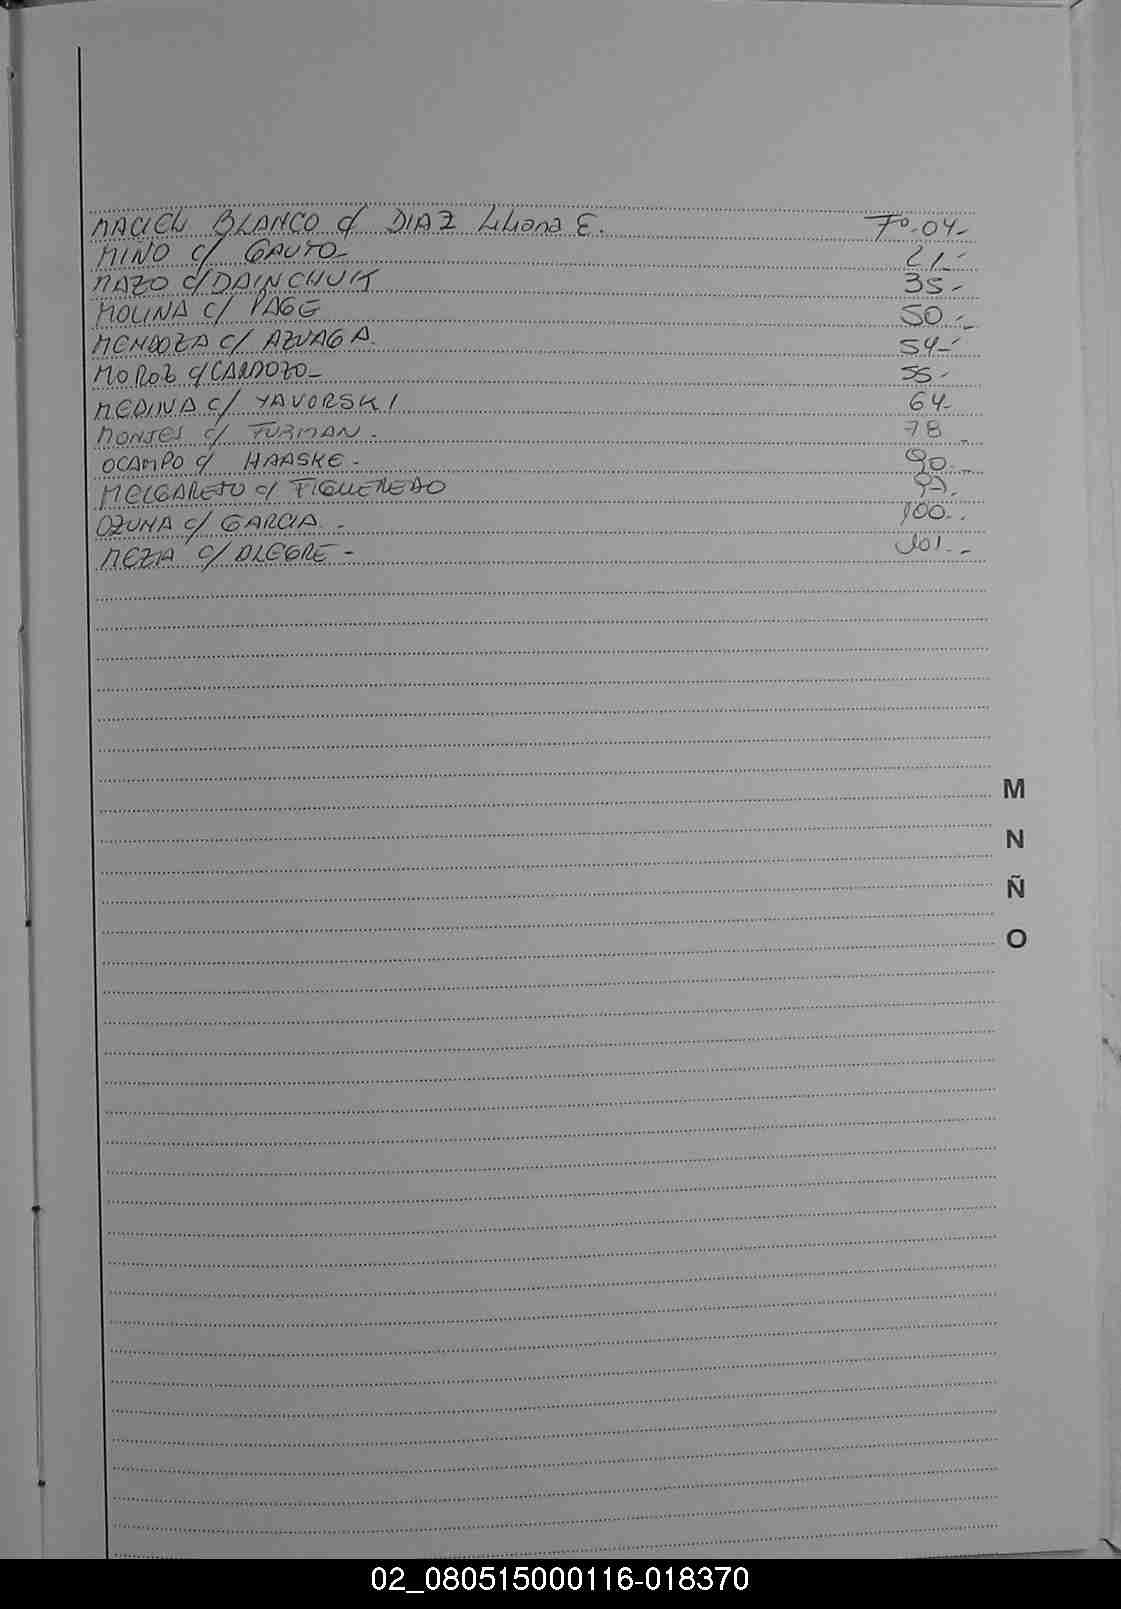 MACIEL BLANCO c/ DIAZ Liliana E. Fº-04-
MIÑO c/ GAUTO- 21.-
MAZO c/ DAINCHUK 35.-
MOLINA c/ PAGE 50.-
MENDOZA c/ AZUAGA. 54-
MOROZ c/ CARDOZO- 55-
MEDINA c/ YAVORSKI 64-
MONJES c/ FURMAN. 78-
OCAMPO c/ HAASKE- 90.-
MELGAREJO c/ FIGUEREDO
OZUNA c/ GARCIA.- 100.-
MEZA c/ ALEGRE- 101.-
M
N
Ñ
O
02_080515000116-018370